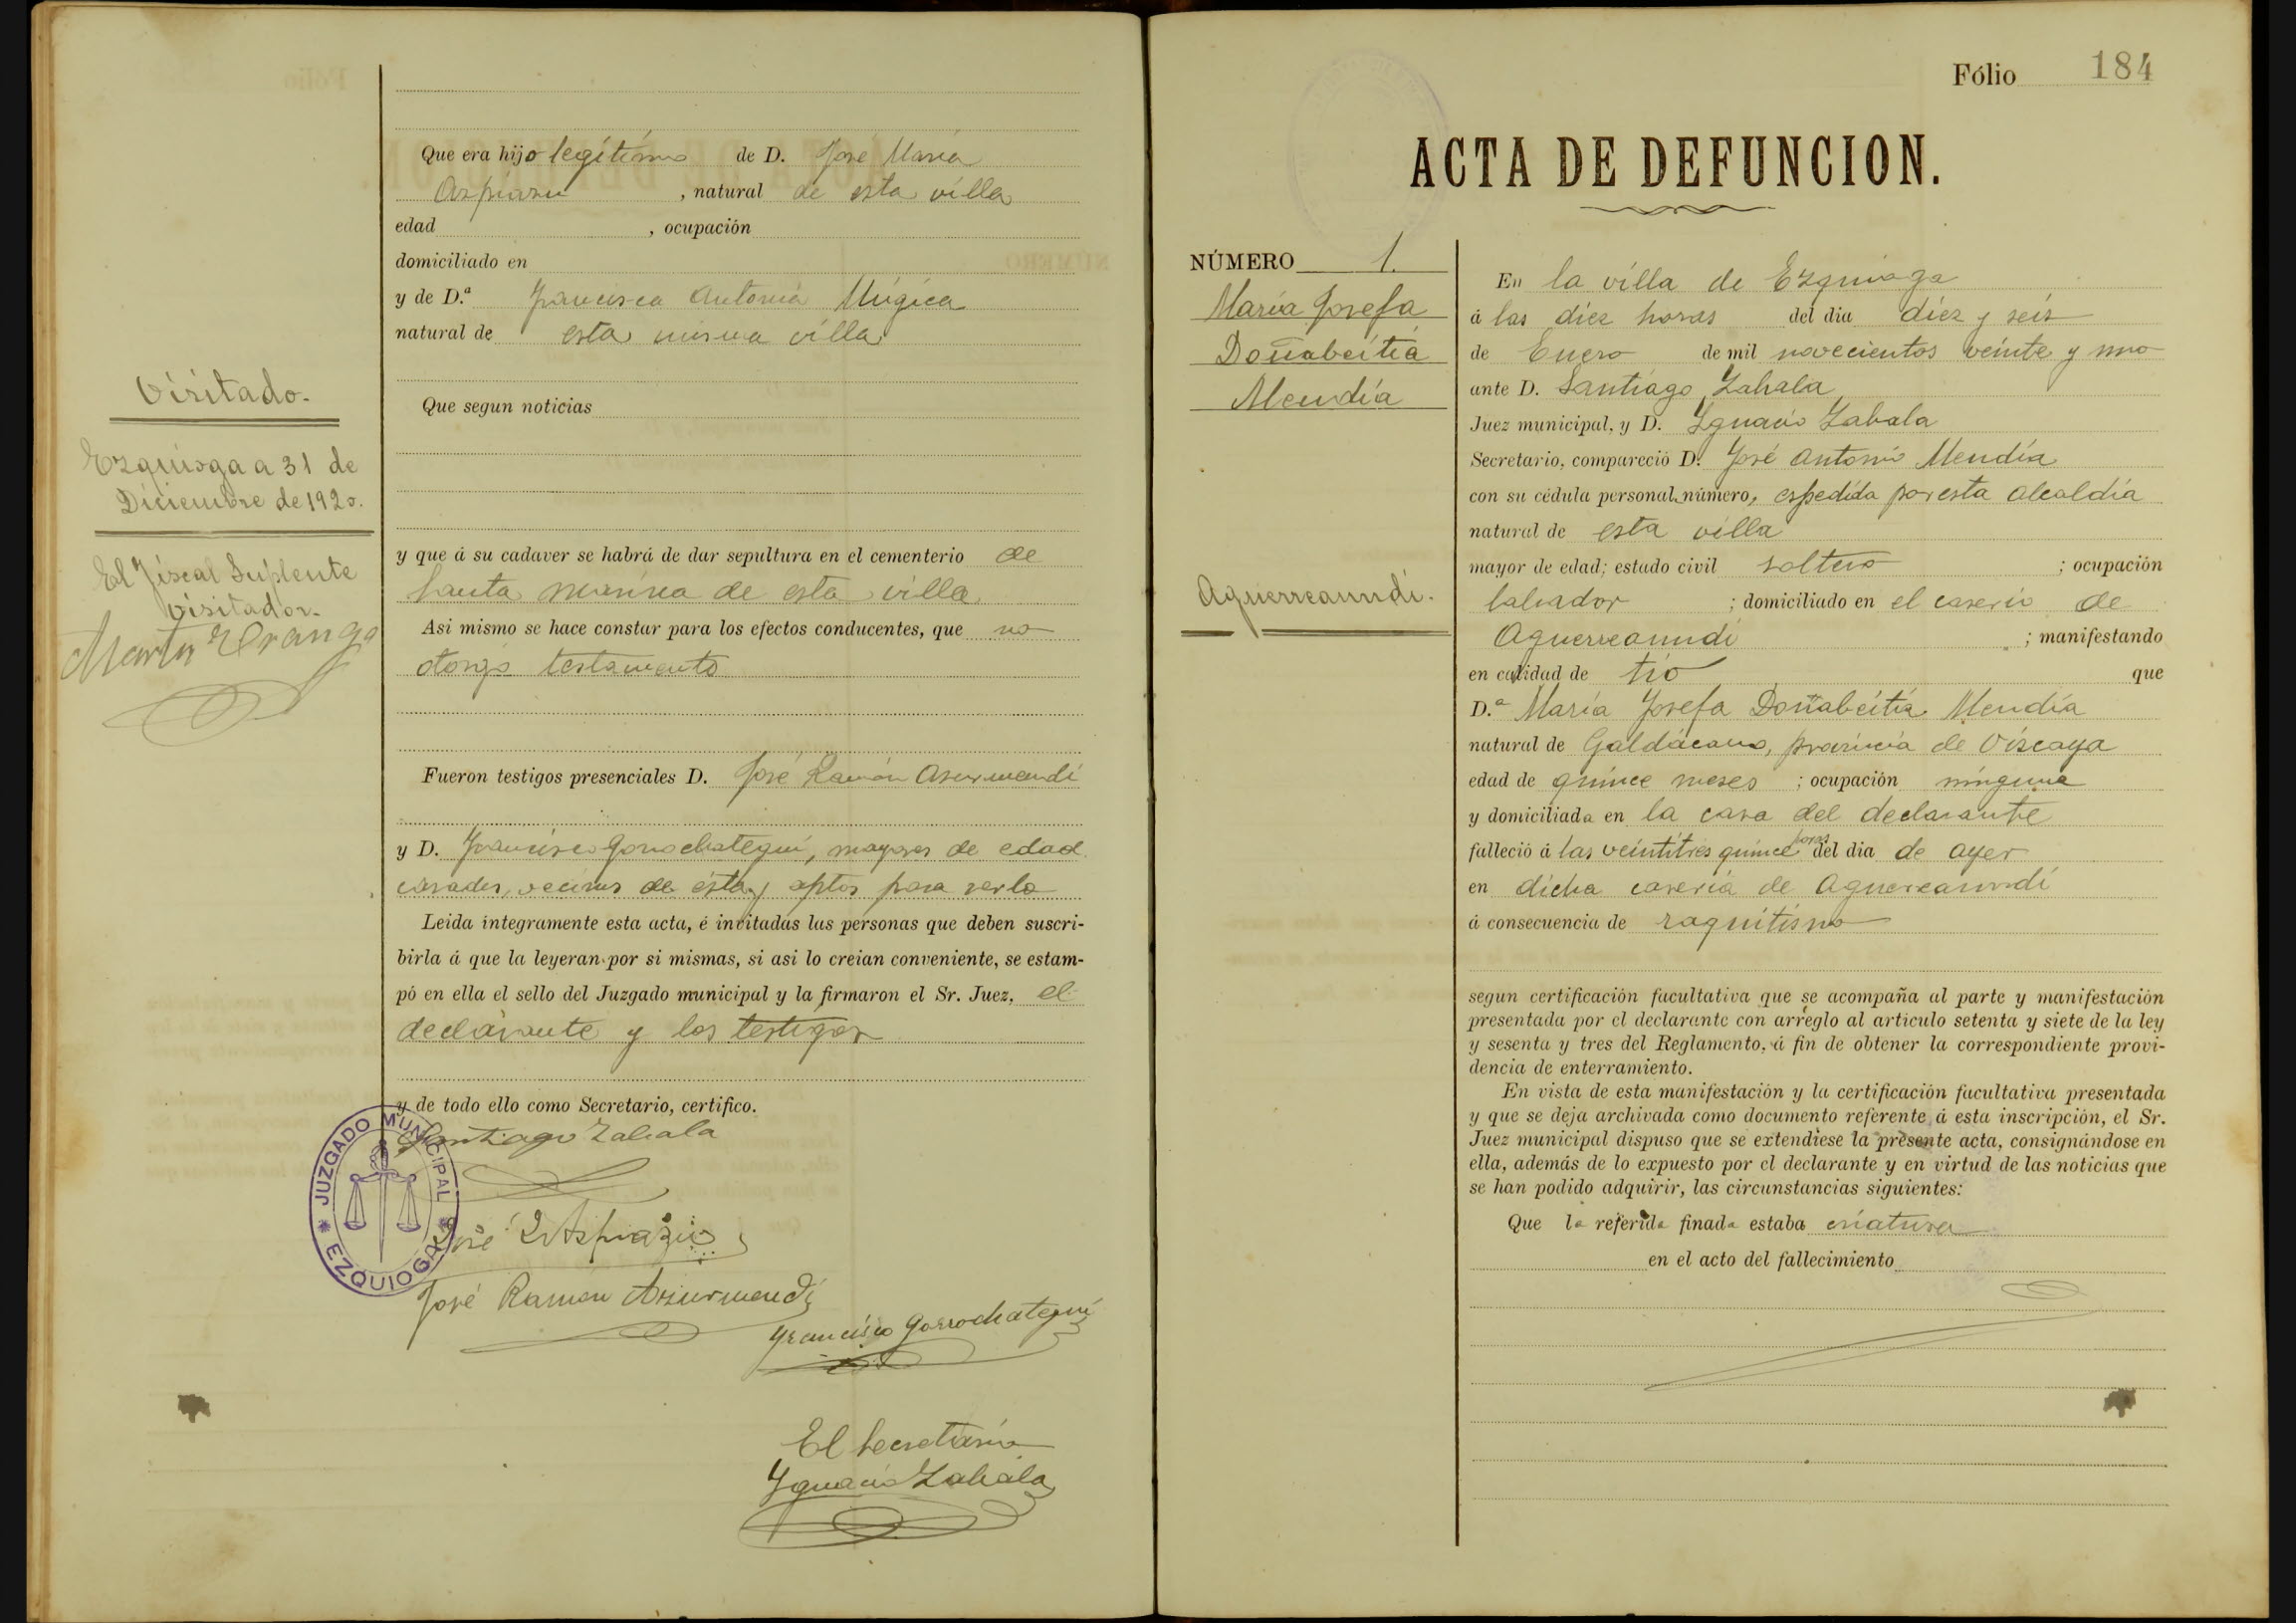 Que era hijo legítimo de D. José María
Aspiazu, natural de esta villa
edad , ocupación
domiciliado en
y de D.ª Francisca Antonia Múgica
natural de esta misma villa
Que segun noticias
y que á su cadaver se habrá de dar sepultura en el cementerio de
Santa Marina de esta villa
Asi mismo se hace constar para los efectos conducentes, que no
otorgó testamento
Fueron testigos presenciales D. José Ramón Asurmendi
y D. Francisco Gorrochategui, mayores de edad
casados, vecinos de ésta y aptos para serlo
Leida íntegramente esta acta, é invitadas las personas que deben suscri-
birla á que la leyeran por si mismas, si asi lo creian conveniente, se estam-
pó en ella el sello del Juzgado municipal y la firmaron el Sr. Juez, el
declarante y los testigos
y de todo ello como Secretario, certifico.
Santiago Zabala
José Aspiazu
José Ramon Asurmendi
Francisco Gorrochategui
El Secretario
Ygnacio Zabala
JUZGADO MUNICIPAL * EZQUIOGA *
Visitado.
Ezquioga a 31 de
Diciembre de 1920.
El Fiscal Suplente
visitador.
Martin Oranga
Fólio 184
ACTA DE DEFUNCION.
NÚMERO 1.
María Josefa
Doñabeitia
Mendía
Aguerreaundi.
En la villa de Ezquioga
á las diez horas del dia diez y seis
de Enero de mil novecientos veinte y uno
ante D. Santiago Zabala
Juez municipal, y D. Ygnacio Zabala
Secretario, compareció D. José Antonio Mendía
con su cédula personal número, espedida por esta Alcaldía
natural de esta villa
mayor de edad; estado civil soltero ; ocupación
labrador ; domiciliado en el caserio de
Aguerreaundi ; manifestando
en calidad de tío que
D.ª María Josefa Doñabeitia Mendía
natural de Galdácano, provincia de Viscaya
edad de quince meses ; ocupación ninguna
y domiciliada en la casa del declarante
falleció á las veintitres quince horas del dia de ayer
en dicha caseria de Aguerreaundi
á consecuencia de raquitismo
segun certificación facultativa que se acompaña al parte y manifestación
presentada por el declarante con arreglo al artículo setenta y siete de la ley
y sesenta y tres del Reglamento, á fin de obtener la correspondiente provi-
dencia de enterramiento.
En vista de esta manifestación y la certificación facultativa presentada
y que se deja archivada como documento referente á esta inscripción, el Sr.
Juez municipal dispuso que se extendiese la presente acta, consignándose en
ella, además de lo expuesto por el declarante y en virtud de las noticias que
se han podido adquirir, las circunstancias siguientes:
Que la referida finada estaba criatura
en el acto del fallecimiento